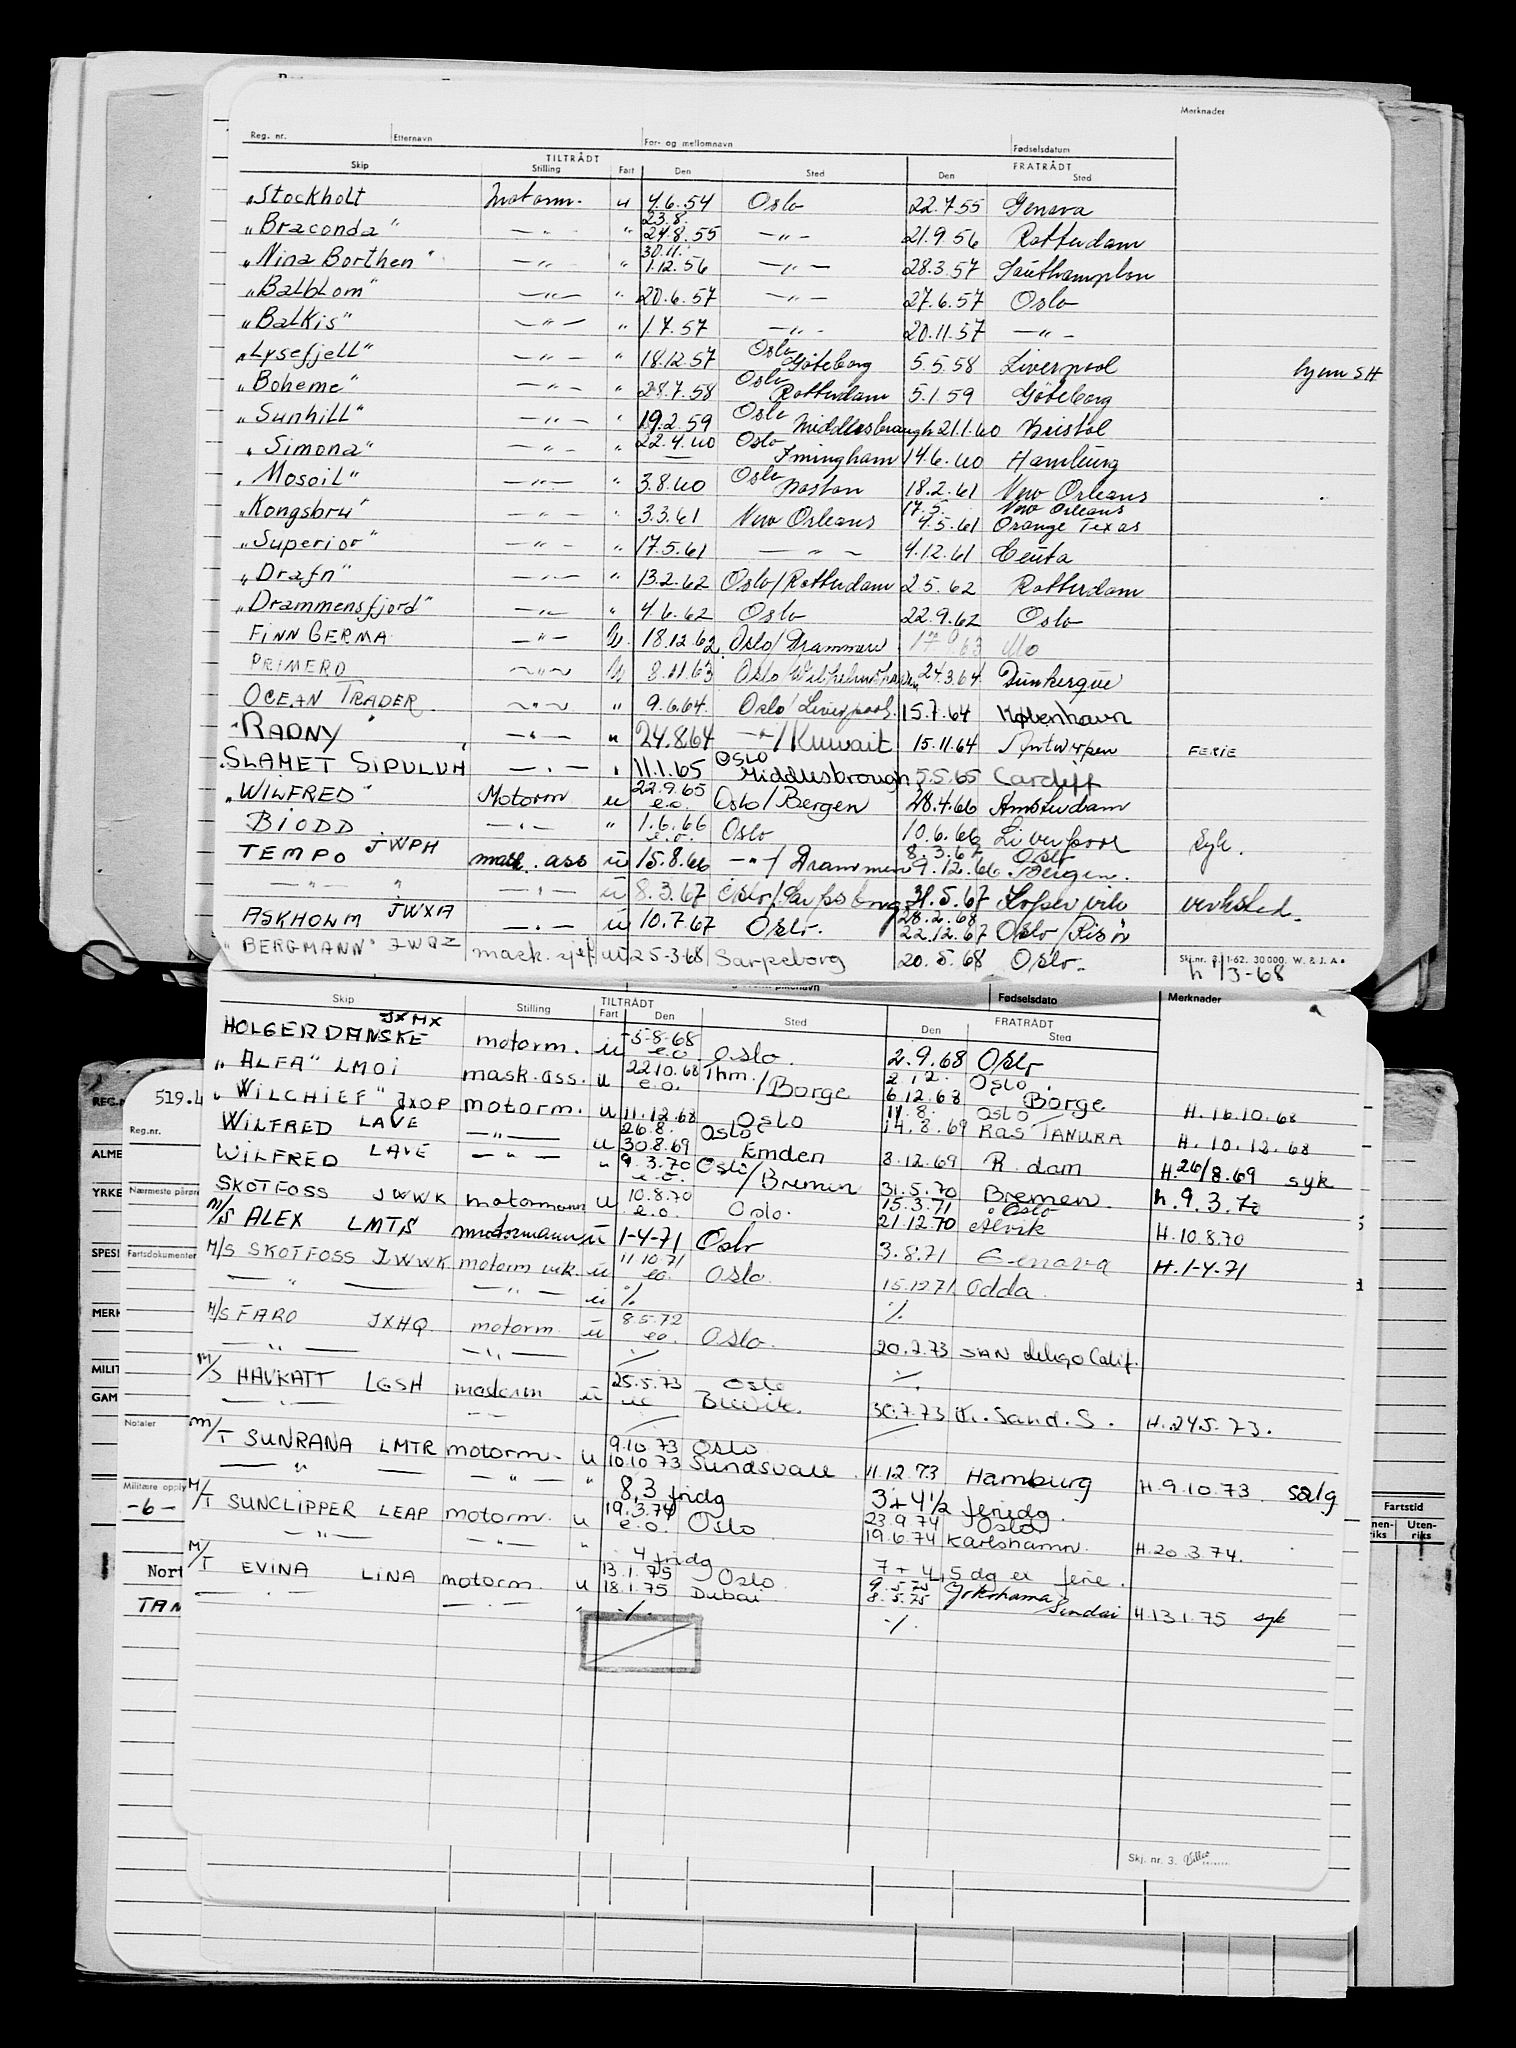 Merknader
Reg. nr. Etternavn For- og mellomnavn Fødselsdatum
TILTRÅDT FRATRÅDT
Skip Stilling Fart Den Sted Den Sted
"Stockholt Motorm. u 4.6.54 Oslo 22.7.55 Genova
23.8.
"Braconda" —"— " 24.8.55 —"— 21.9.56 Rotterdam
30.11.
"Nina Borthen" —"— " 1.12.56 —"— 28.3.57 Southampton
"Balblom" —"— " 20.6.57 —"— 27.6.57 Oslo
"Balkis" —"— " 1.7.57 —"— 20.11.57 —"—
"Lysefjell" —"— " 18.12.57 Oslo Göteborg 5.5.58 Liverpool hjem SH
"Boheme" —"— " 28.7.58 Oslo Rotterdam 5.1.59 Göteborg
"Sunhill" —"— " 19.2.59 Oslo Middlesbrough 21.1.60 Bristol
"Simona" —"— " 22.4.60 Oslo Imingham 14.6.60 Hamburg
"Mosoil" —"— " 3.8.60 Oslo Boston 18.2.61 New Orleans
17.5. New Orleans
"Kongsbru" —"— " 3.3.61 New Orleans 4.5.61 Orange Texas
"Superior" —"— " 17.5.61 —"— 4.12.61 Ceuta
"Drafn" —"— " 13.2.62 Oslo/Rotterdam 2.5.62 Rotterdam
"Drammensfjord" —"— " 4.6.62 Oslo 22.9.62 Oslo
FINN GERMA —"— 18.12.62 Oslo/Drammen Mo
PRIMERO —"— 8.11.63 Oslo/Wilhelmshaven 24.3.64 Dunkerque
OCEAN TRADER —"— " 9.6.64 Oslo/Liverpool. 15.7.64 København
"RADNY" —"— " 24.8.64 —"—/Kuwait 15.11.64 Antwerpen FERIE
SLAMET SIPULUH —"— " 11.1.65 OSLO Middlesbrough 5.5.65 Cardiff
"WILFRED" Motorm u 22.9.65 e.o. Oslo/Bergen 28.4.66 Amsterdam
BIODD —"— " 1.6.66 e.o. Oslo 10.6.66 Liverpool Syk.
8.3.67 Oslo
TEMPO JWPH mask. ass u 15.8.66 —"—/Drammen 9.12.66 Bergen.
—"— " —"— u 8.3.67 Oslo/Sarpsborg 31.5.67 Kopervik verksted.
28.2.68
ASKHOLM JWXA —"— u 10.7.67 Oslo. 22.12.67 Oslo/Risør
"BERGMANN" JWQZ mask.sjef u 25-3-68 Sarpsborg 20.5.68 Oslo.
Skj.nr. 3. 1-62. 30 000. W. & J. A.
h 1/3-68
Fødselsdato Merknader
Skip Stilling TILTRÅDT Fart Den Sted FRATRÅDT Den Sted
HOLGER DANSKE JXMX motorm. u -5-8-68 e.o. Oslo. 2.9.68 Oslo
"ALFA" LMOI mask.ass. u 22.10.68 e.o. Thm./Borge 2.12. Oslo.
6.12.68 Borge H. 16.10.68
"WILCHIEF" JXOP motorm. u 11.12.68 Oslo 11.8. Oslo
14.8.69 RAS TANURA H. 10.12.68
WILFRED LAVE —"— u 26.8. Oslo
30.8.69 Emden 8.12.69 R.dam H.26/8.69 syk
WILFRED LAVE —"— " 9.3.70 e.o. Oslo/Bremen 31.5.70 Bremen h.9.3.70
SKOTFOSS JWWK motormann u 10.8.70 e.o. Oslo. 15.3.71 Oslo
21.12.70 Ålvik H.10.8.70
M/S ALEX LMTS motormann u 1-4-71 Oslo 3.8.71 Genova H.1-4-71
M/S SKOTFOSS JWWK motorm vik. u 11.10.71 eo. Oslo. 15.12.71 Odda.
—"— —"— u ·/. ·/.
M/S FARO JXHQ motorm u 8.5.72 eo. Oslo. 20.2.73 SAN diego Calif.
—"— —"— ·/. ·/.
M/S HAVKATT LGSH motorm u 25.5.73 Oslo
Brevik. 30.7.73 Kr. Sand. S. H.24.5.73.
M/T SUNRANA LMTR motorm. u 9.10.73 Oslo
10.10.73 Sundsvall 11.12.73 Hamburg H.9.10.73 salg
—"— —"— " 8,3 fridg 3 + 4½ feriedg.
M/T SUNCLIPPER LEAP motorm. u 19.3.74 e.o. Oslo 23.9.74 Oslo
19.6.74 Karlshamn. H.20.3.74.
—"— —"— " 4 fridg 7 + 4,5 dg er ferie.
M/T EVINA LINA motorm. u 13.1.75 Oslo 9.5.75 Yokohama
18.1.75 Dubai 8.5.75 Sendai H.13.1.75 syk
—"— —"— " ·/. ·/.
Skj. nr. 3.
REG.N
519.4
Reg.nr.
ALME
YRKE
Nærmeste pårøre
SPESI
Fartsdokumenter
MERK
MILIT
GAM
Notater
Militære opply
-6-
Nort
TAN
Fartstid
nen-riks Uten-riks